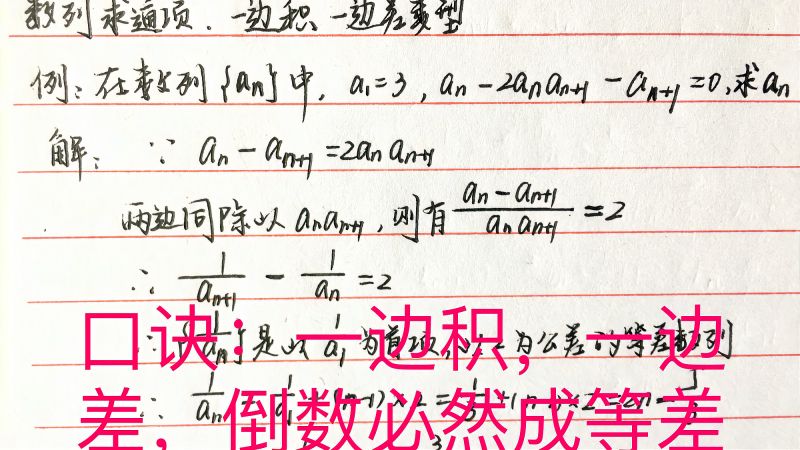 数列求通项.一边积一边差类型
例:在数列{an}中, a₁=3, an-2anan+1-an+1=0,求an
解: ∵ an-an+1=2anan+1
两边同除以anan+1,则有 (an-an+1)/(anan+1) =2
∴ 1/an+1 - 1/an =2
口诀:一边积,一边
是以 1/a₁ 为首项,以2为公差的等差数列
差,倒数必然成等差
∴ 1/an